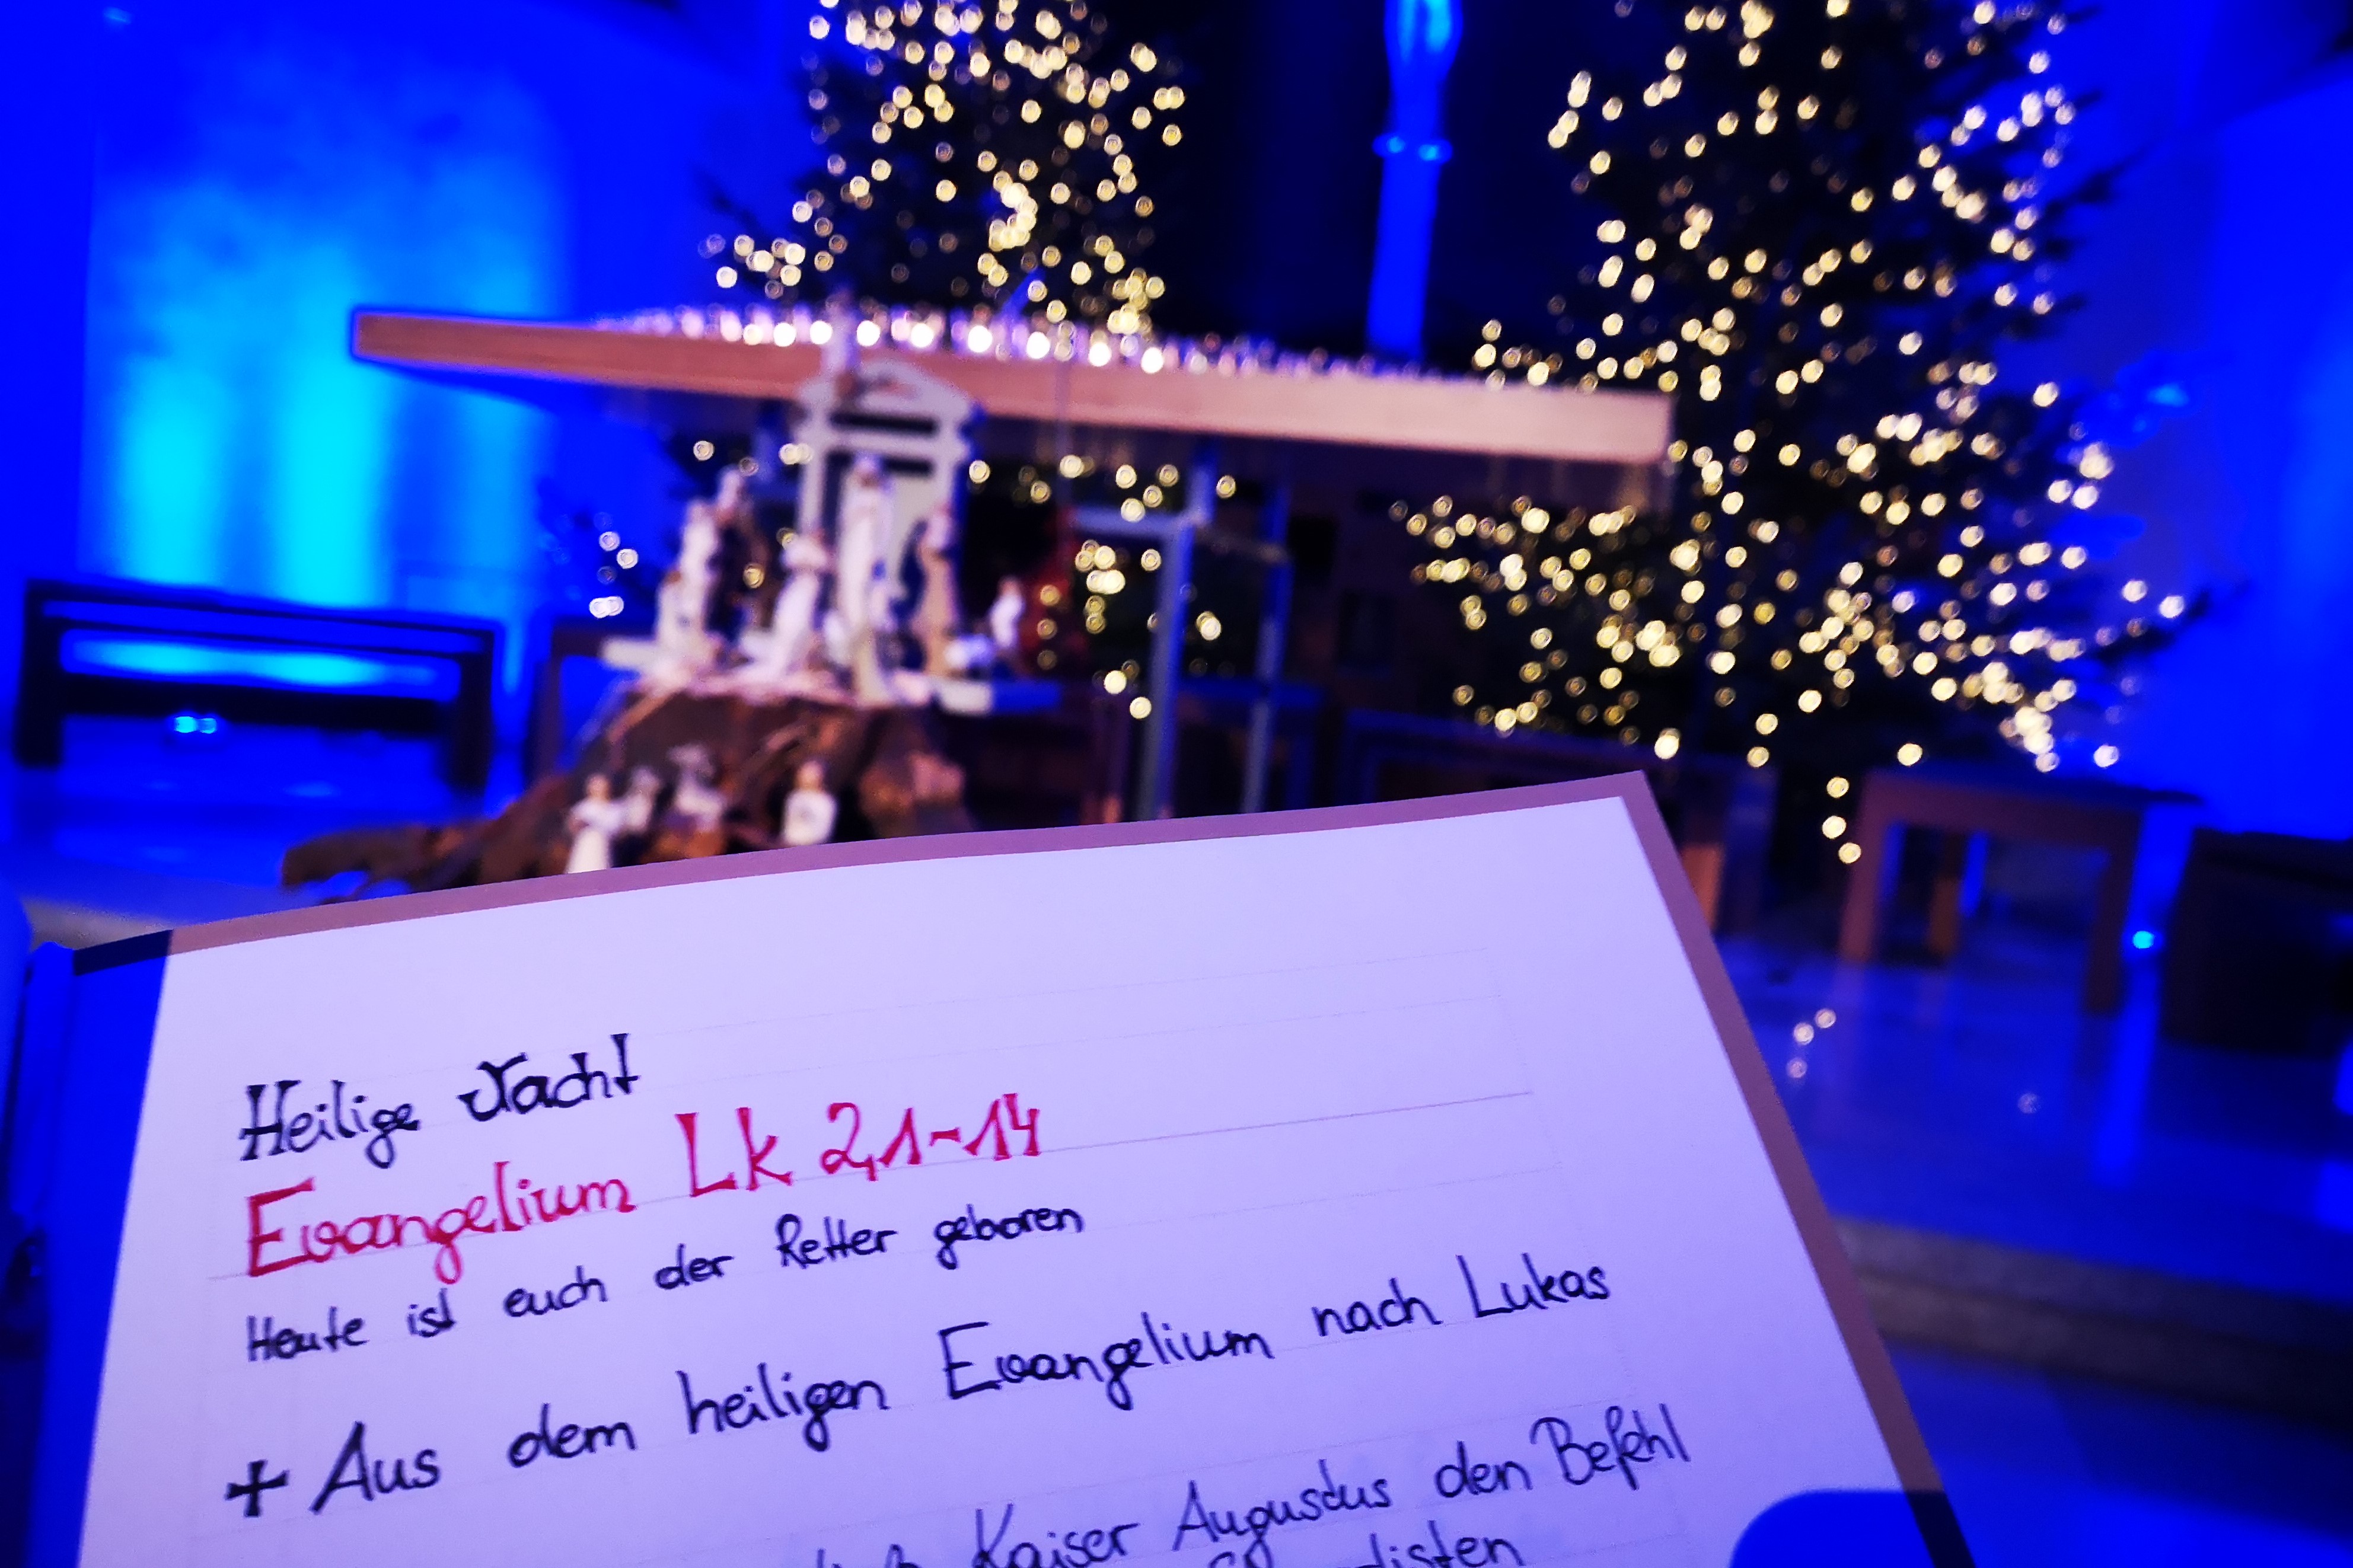 Heilige Nacht
Evangelium Lk 2,1-14
Heute ist euch der Retter geboren
+ Aus dem heiligen Evangelium nach Lukas
Kaiser Augustus den Befehl